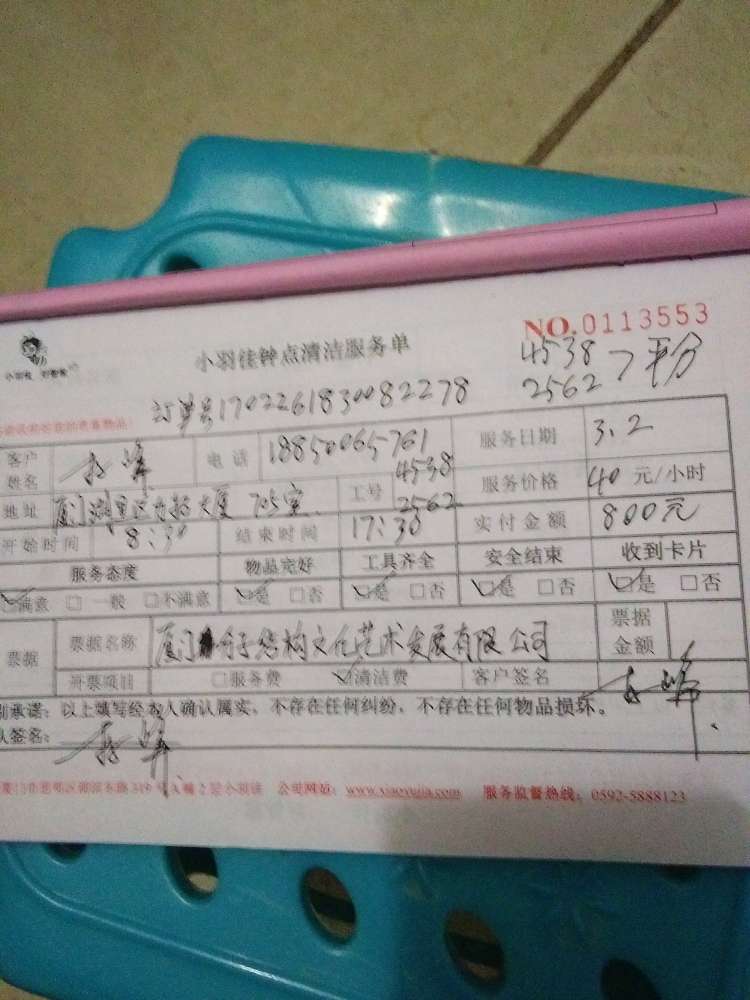 NO.0113553
小羽佳钟点清洁服务单
小羽佳 好管家
4538
2562 > 平分
订单号1702261830082278
客户姓名 电话 18850065761 服务日期 3.2
地址 厦门湖里区 大厦 705室 工号 4538 2562 服务价格 40 元/小时
开始时间 8:30 结束时间 17:30 实付金额 800元
服务态度 物品完好 工具齐全 安全结束 收到卡片
☑满意 □一般 □不满意 ☑是 □否 ☑是 □否 ☑是 □否 ☑是 □否
票据 票据名称 厦门 子结构文化艺术发展有限公司 票据金额
开票项目 □服务费 ☑清洁费 客户签名
承诺:以上填写经本人确认属实,不存在任何纠纷,不存在任何物品损坏。
签名:
2层小羽佳 公司网址:www.xiaoyujia.com 服务监督热线:0592-5888123